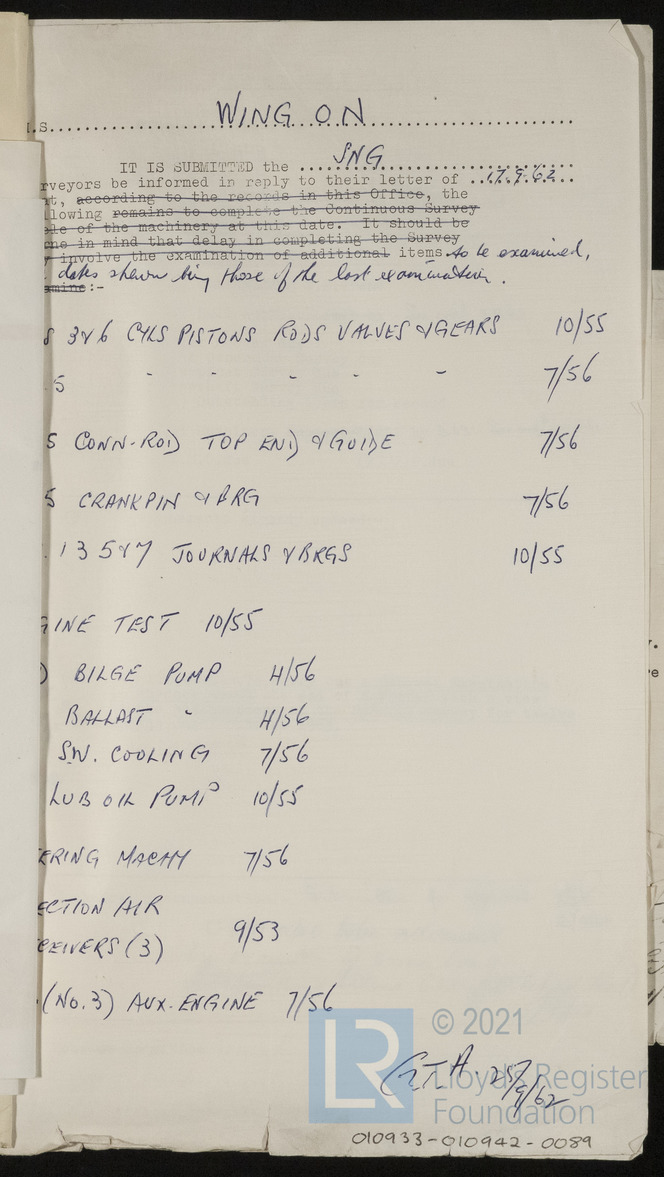 .S........WING ON........
IT IS SUBMITTED the ........SNG........
rveyors be informed in reply to their letter of ..17.9.62...
rt, according to the records in this Office, the
llowing remains to complete the Continuous Survey
le of the machinery at this date. It should be
ne in mind that delay in completing the Survey
y involve the examination of additional items to be examined,
dates shewn being those of the last examination.
amine:-
S 3 & 6 CYLS PISTONS RODS VALVES & GEARS 10/55
.5 " " " " " 7/56
5 CONN-ROD TOP END & GUIDE 7/56
5 CRANKPIN & BRG 7/56
. 1 3 5 & 7 JOURNALS & BRGS 10/55
GINE TEST 10/55
) BILGE PUMP 4/56
BALLAST " 4/56
S.W. COOLING 7/56
LUB OIL PUMP 10/55
ERING MACHY 7/56
ECTION AIR
CEIVERS (3) 9/53
. (No.3) AUX. ENGINE 7/56
25/9/62
LR
© 2021
Lloyd's Register
Foundation
010933-010942-0089